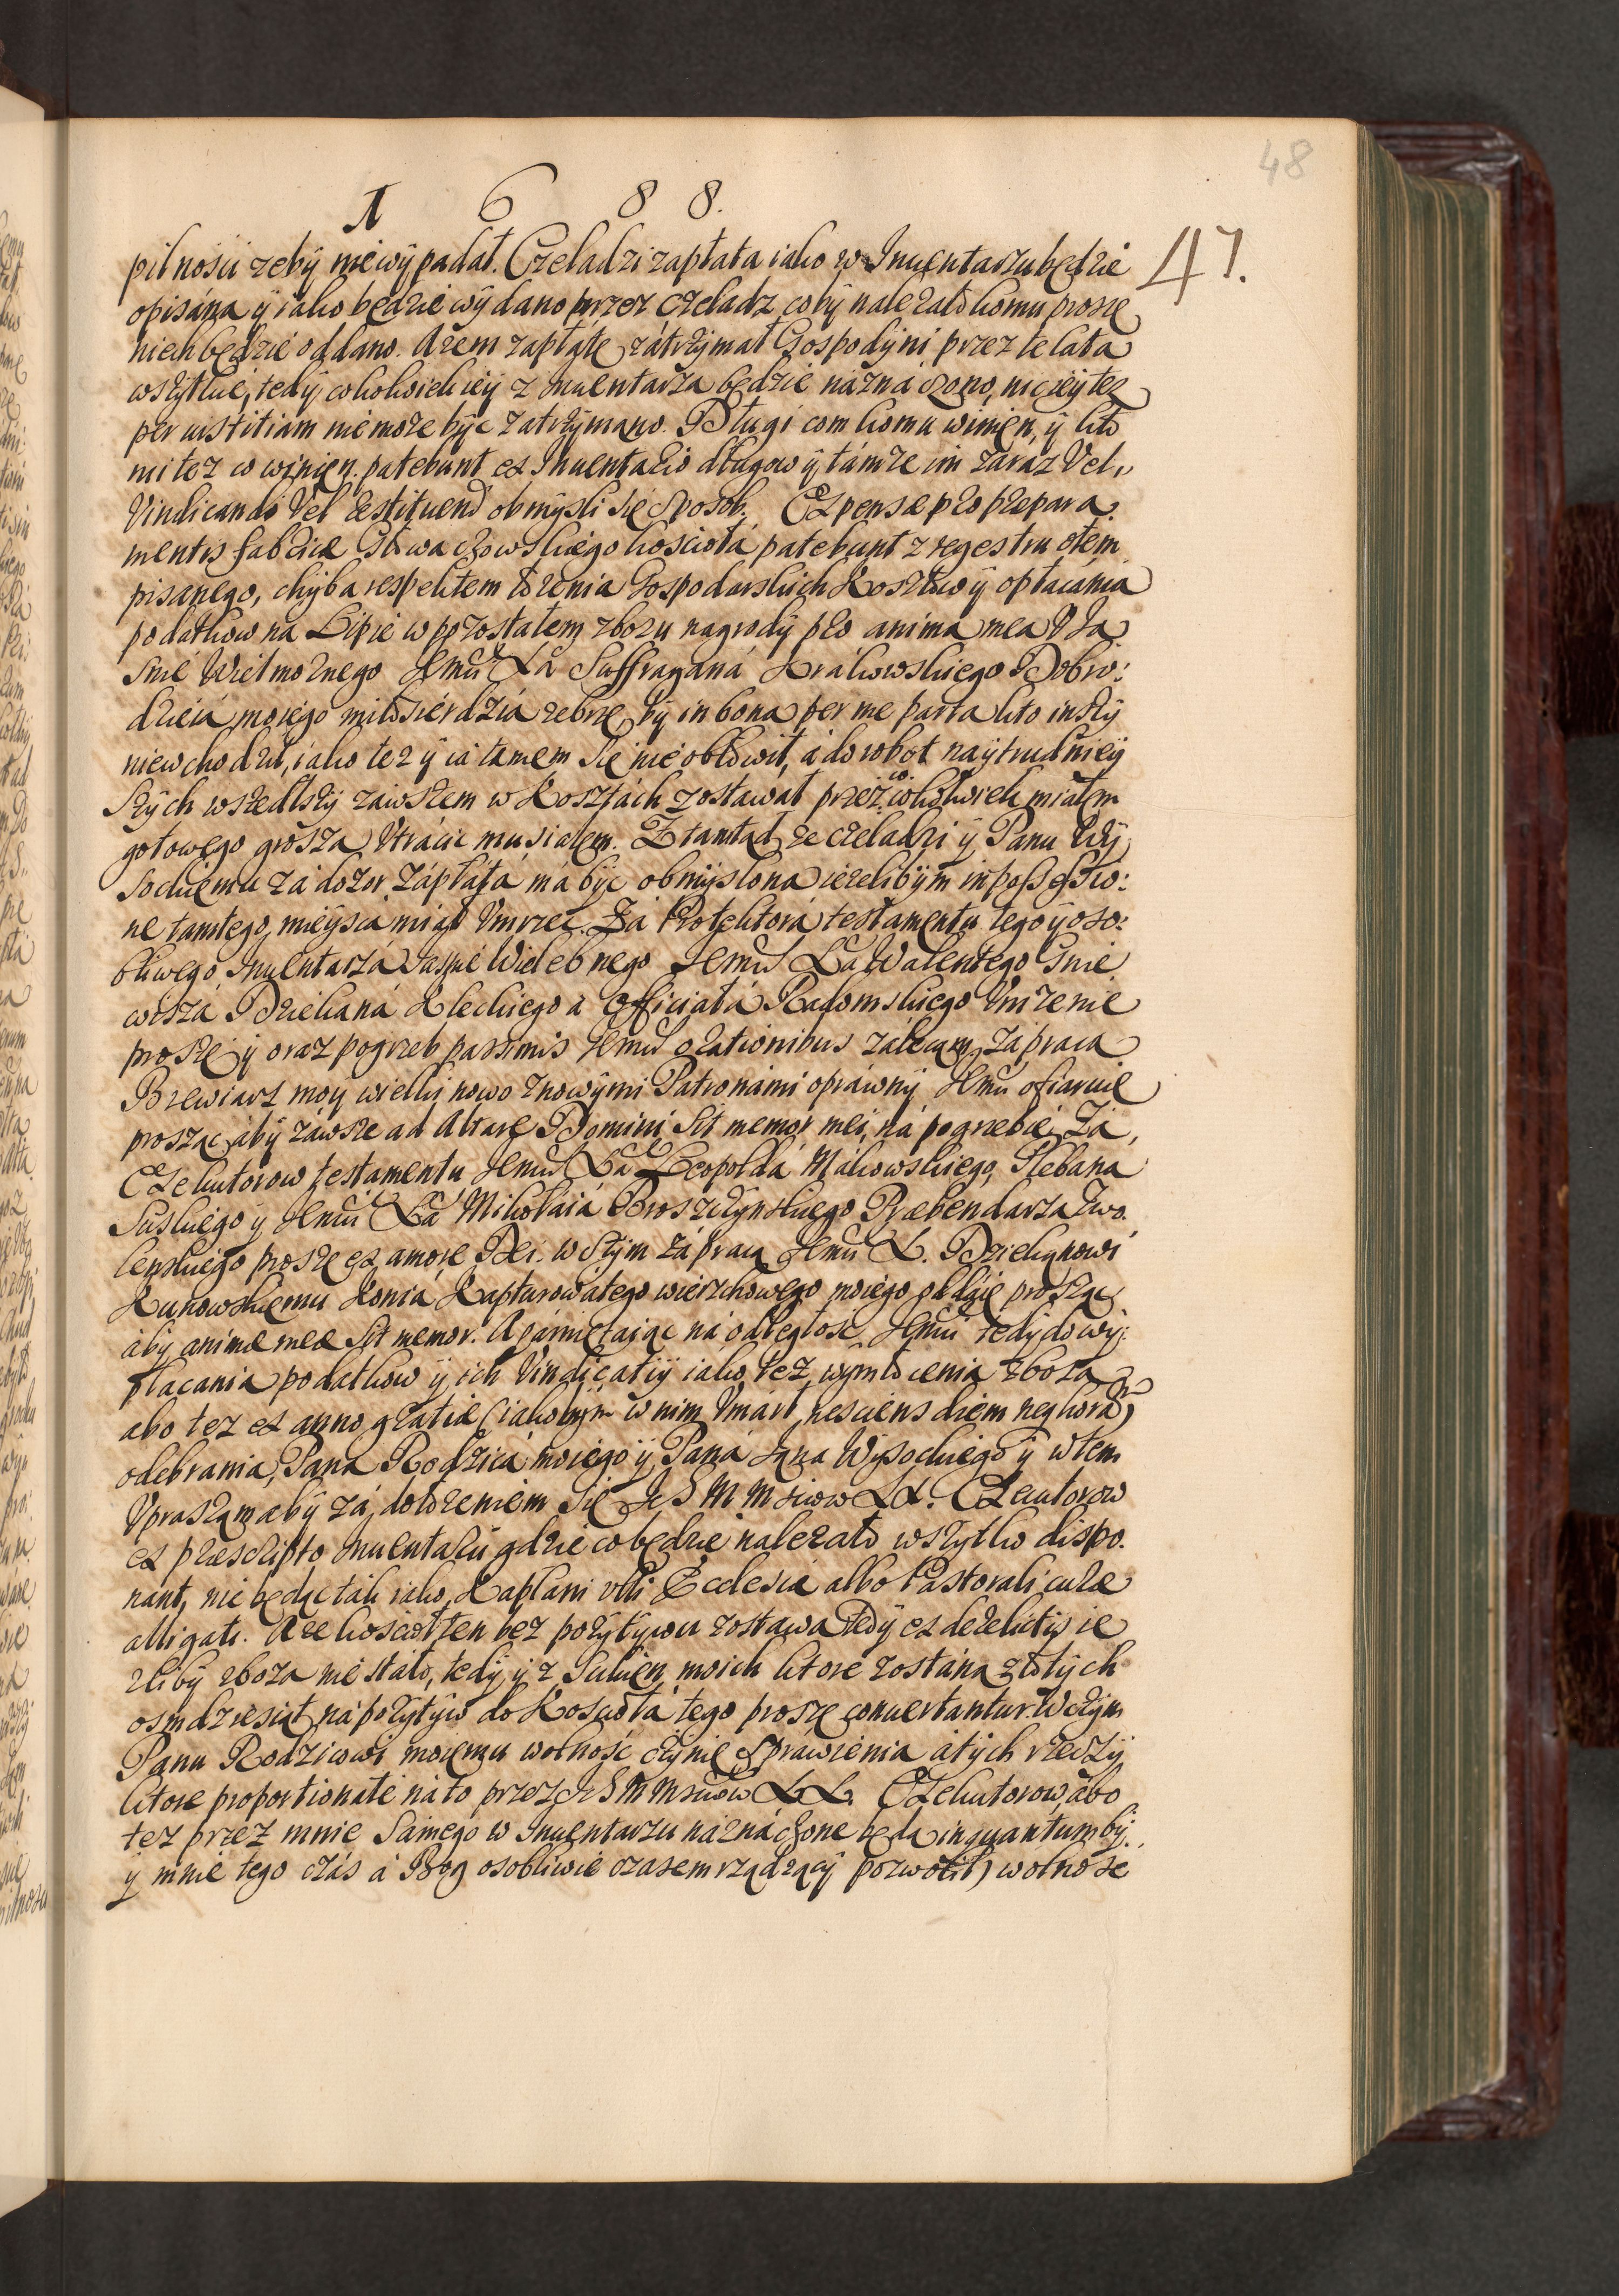 48
1 6 8 8.
47.
pilnosci zeby nie wypadał. Czeladzi zapłata iako w Inuentarzu będzie
opisána y iako będzie wydano przez czeladz coby nalezało komu proszę
niech będzie oddano. Azem zapłatę zátrzymał Gospodyni przez te lata
wszytkie, tedy cokolwiek iey z Inuentarza będzie náznáczono, niczey tez
per iustitiam nie moze byc zatrzymano. Długi com komu winien, y kto
mi tez co winien patebunt ex Inuentario długow y támze im záraz Vel„
Vindicandi Vel restituend obmysli się sposob. Expensæ pro præpara.
mentis fabricæ kosciołá patebunt z regestru otem
pisanego, chyba respektem łozenia Gospodarskich Kosztow y opłacánia
podatkow ná Lipie w pozostałem zbozu nagrody pro anima mea V Ja
snie Wielmoznego Jemci Xa Suffraganá Krákowskiego Dobro:
dzieia moiego miłosierdzia zebrzę, by in bona per me parta kto inszy
niewchodził, iako tez y ia tamem się nie obłowił, á do robot naytrudniey
szych wszedłszy záwszem w Kosztách zostawał przez co cokolwiek miałem
gotowego grosza Vtrácic musiałem. Ztamtąd ze czeladzi y Panu Wy
sockiemu zá dozor zápłátá má byc obmyslona iezelibym in possessio:
ne tamtego mieysca miał Vmrzec. Zá Protektorá testamentu tego y oso:
bliwego Inuentarzá Jasnie Wielebnego Jemci Xa Walentego Gnie
wosza Dziekaná Kleckiego á Officiałá Radomskiego Vnizenie
proszę y oraz pogrzeb parsimis Jemci orationibus zálecam, zá pracą
Brewiarz moy wielki nowo z nowymi Patronámi opráwny Jemci ofiaruię
prosząc aby záwsze ad Altare Domini sit memor mei, ná pogrzebie. Zá
Exekutorow testamentu Jemci Xa Leopoldá Mákowskiego, Plebana
Suskiego y Jemci Xa Mikołáiá Broszczynskiego Præbendarza Zwo.
lenskiego proszę ex amore Dei. w Stym zá pracą Jemci X. Dziekanowi
Kunowskiemu Koniá Kapturowátego wierzchowego moiego oddaię prosząc
áby animæ meæ sit memor. A pámiętaiąc ná odległosc Jemci tedy do wy:
płacania podatkow y ich Vindicatiy iako tez wymłocenia zboza
abo tez ex anno gratiæ (iakobym w nim Vmárł, nesciens diem neq horam)
odebrania, Pana Rodzicá moiego y Paná Jána Wysockiego y w tem
Vpraszam aby zá dołozeniem się Ich M Mciow XX. Exekutorow
ex præscripto Inuentarii gdzie co będzie nalezało wszytko dispo.
nant, nie będąc tak iako Kapłani vlli Ecclesiæ albo Pastorali curæ
alligati. A ze kosciołten bez pozytywu zostawa tedy ex derelictis ie
zliby zboza nie stało, tedy y z Sukien moich ktore zostáną złotych
osmdziesiąt ná pozytyw do Koscołá tego proszę conuertantur. W czym
Panu Rodzicowi moiemu wolnosc czynię sprawienia á tych rzeczy
ktore proportionate ná to przez Ich M Mciow XX. Exekutorow ábo
tez przez mnie Sámego w Inuentarzu náznáczone będą in quantum by
y mnie tego czás á Bog osobliwie czasem rządzący pozwolił) wolnosc